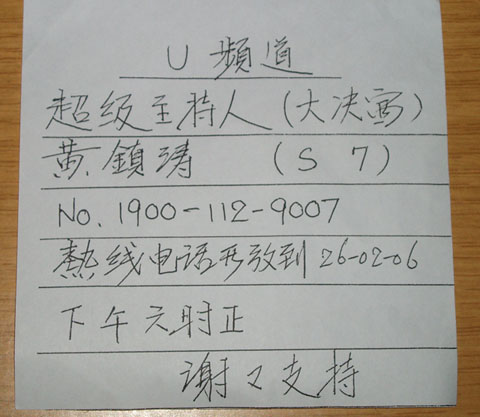 U 頻道
超级主持人 (大决赛)
黄鎮涛 (S 7)
No. 1900-112-9007
热线电话开放到 26-02-06
下午六时正
谢々支持